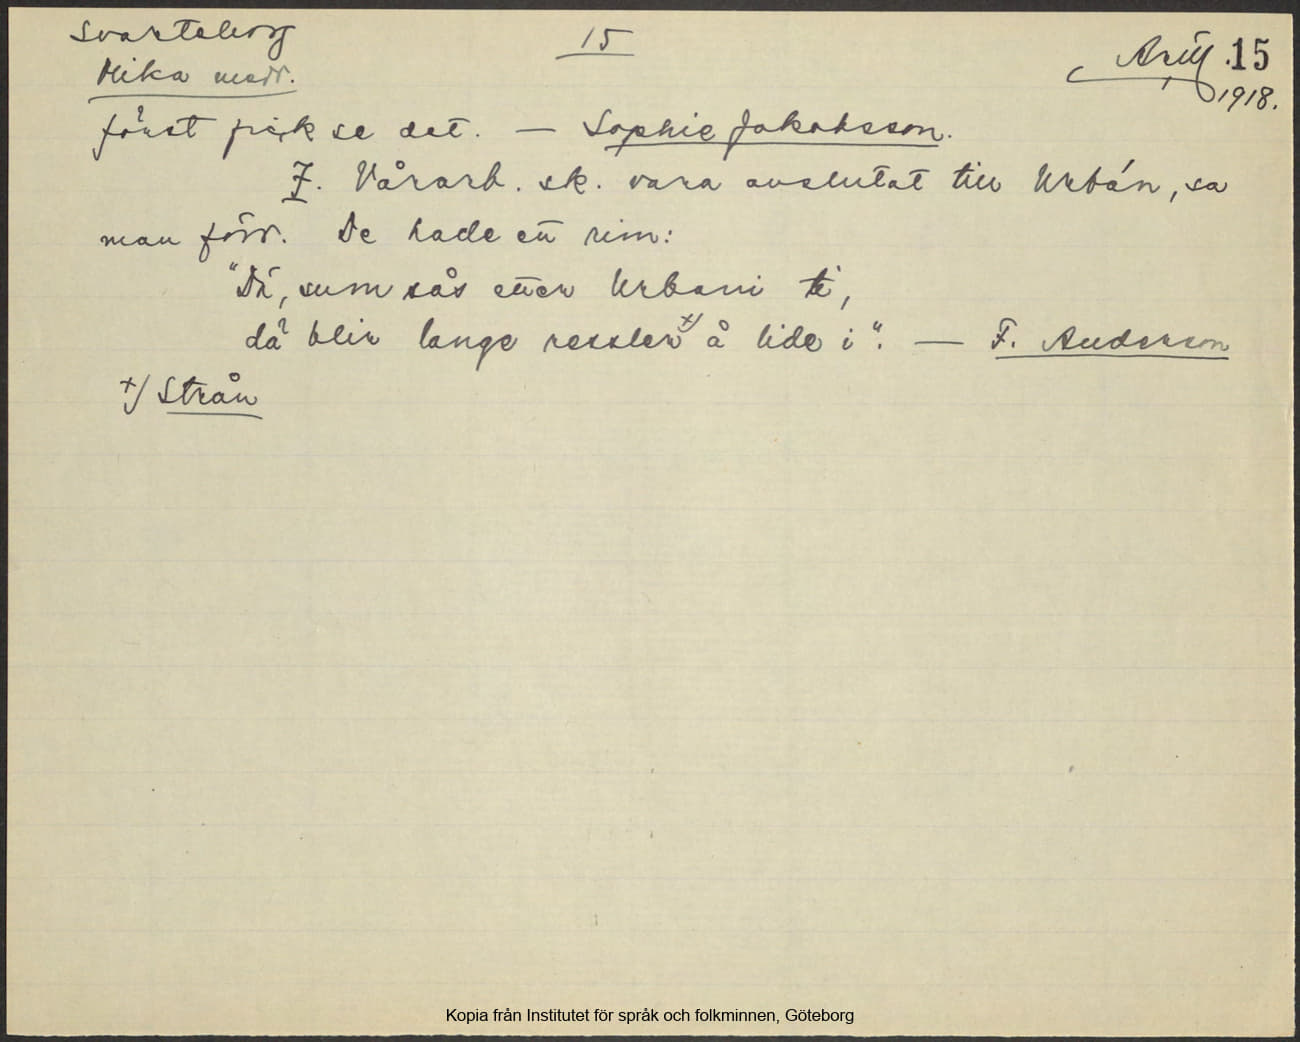 Svarteborg
15
Arill. 15
Olika medd.
1918.
först fick se det. — Sophie Jakobsson.
7. Vårarb. sk. vara avslutat till Urbán, sa
man förr. De hade ett rim:
"Dä, sum sås etter Urbani ti,
dä blir lange ressler +/ å lide i". — F. Anderson
+/ Strån
Kopia från Institutet för språk och folkminnen, Göteborg